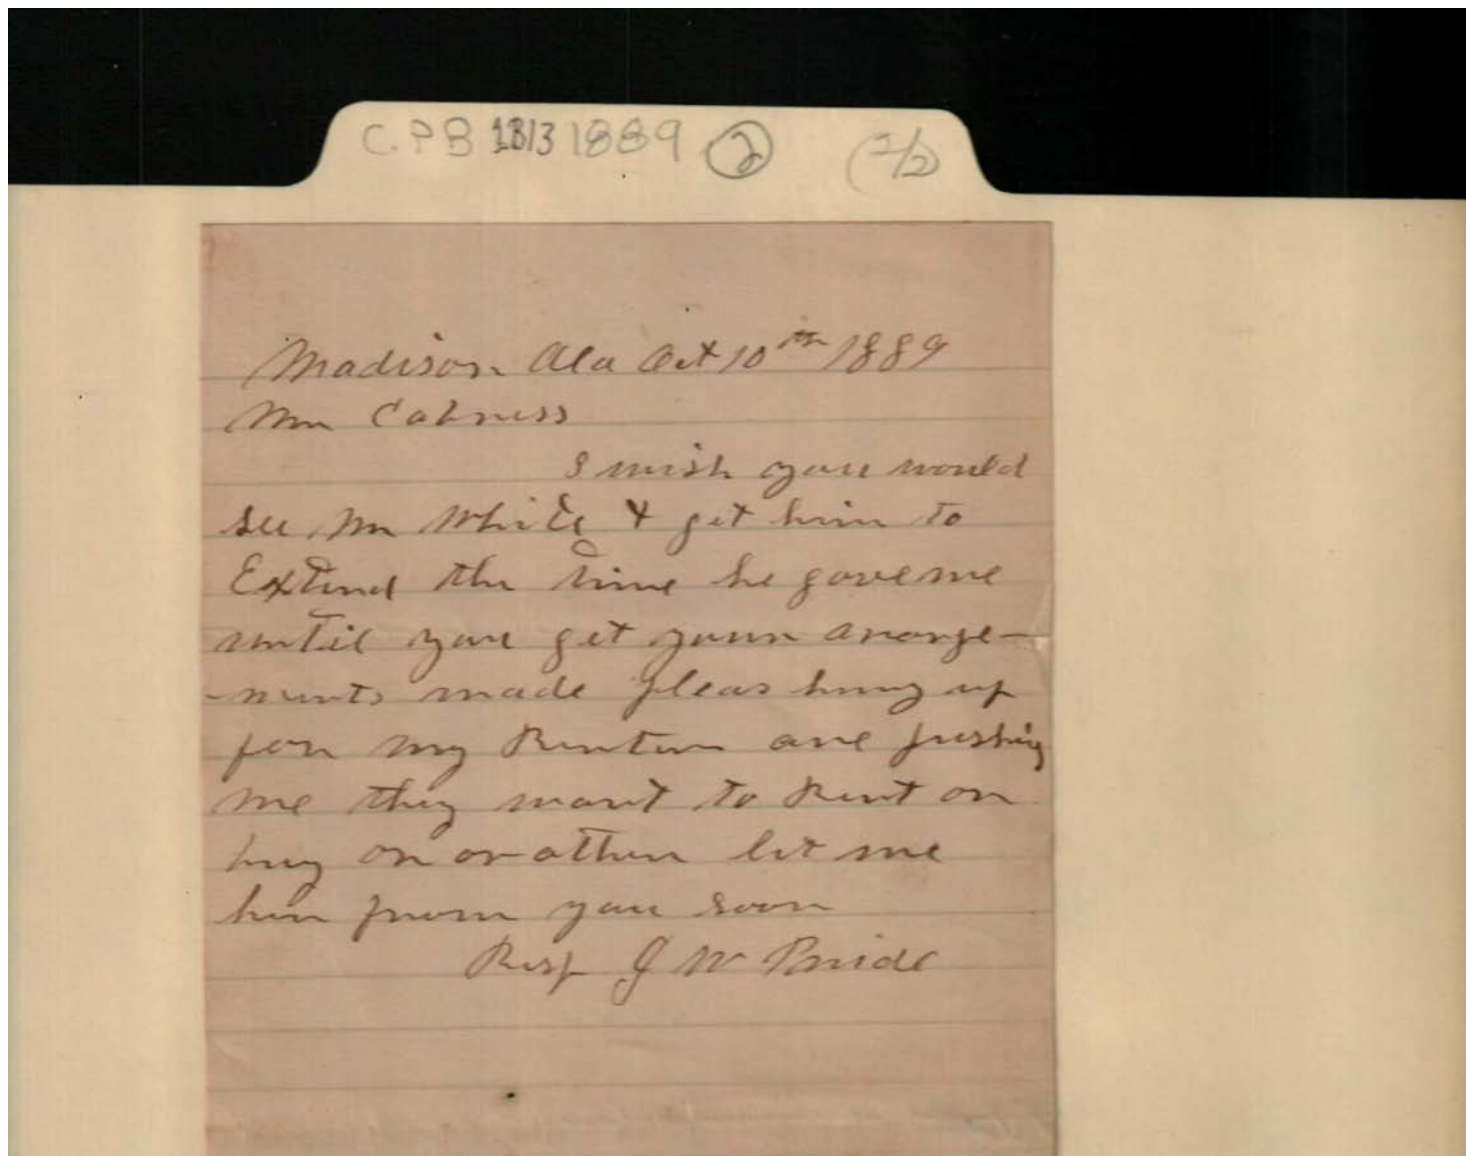 C.PB 1813 1889 ② (2/2)
Madison Ala Oct 10th 1889
Mr Cabness
I wish you would
see Mr White & get him to
Extend the time he gave me
until you get your arange-
-ments made pleas hury up
for my Renters are pushing
me they want to Rent or
buy on or other let me
her from you soon
Resp J W Pride